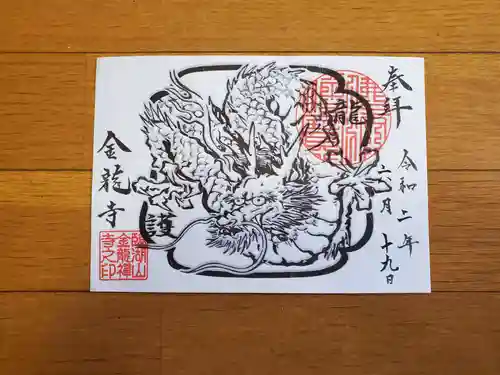 奉拝
令和二年
六月十九日
龍
護
金龍寺
臨湖山
金龍禅
寺之印